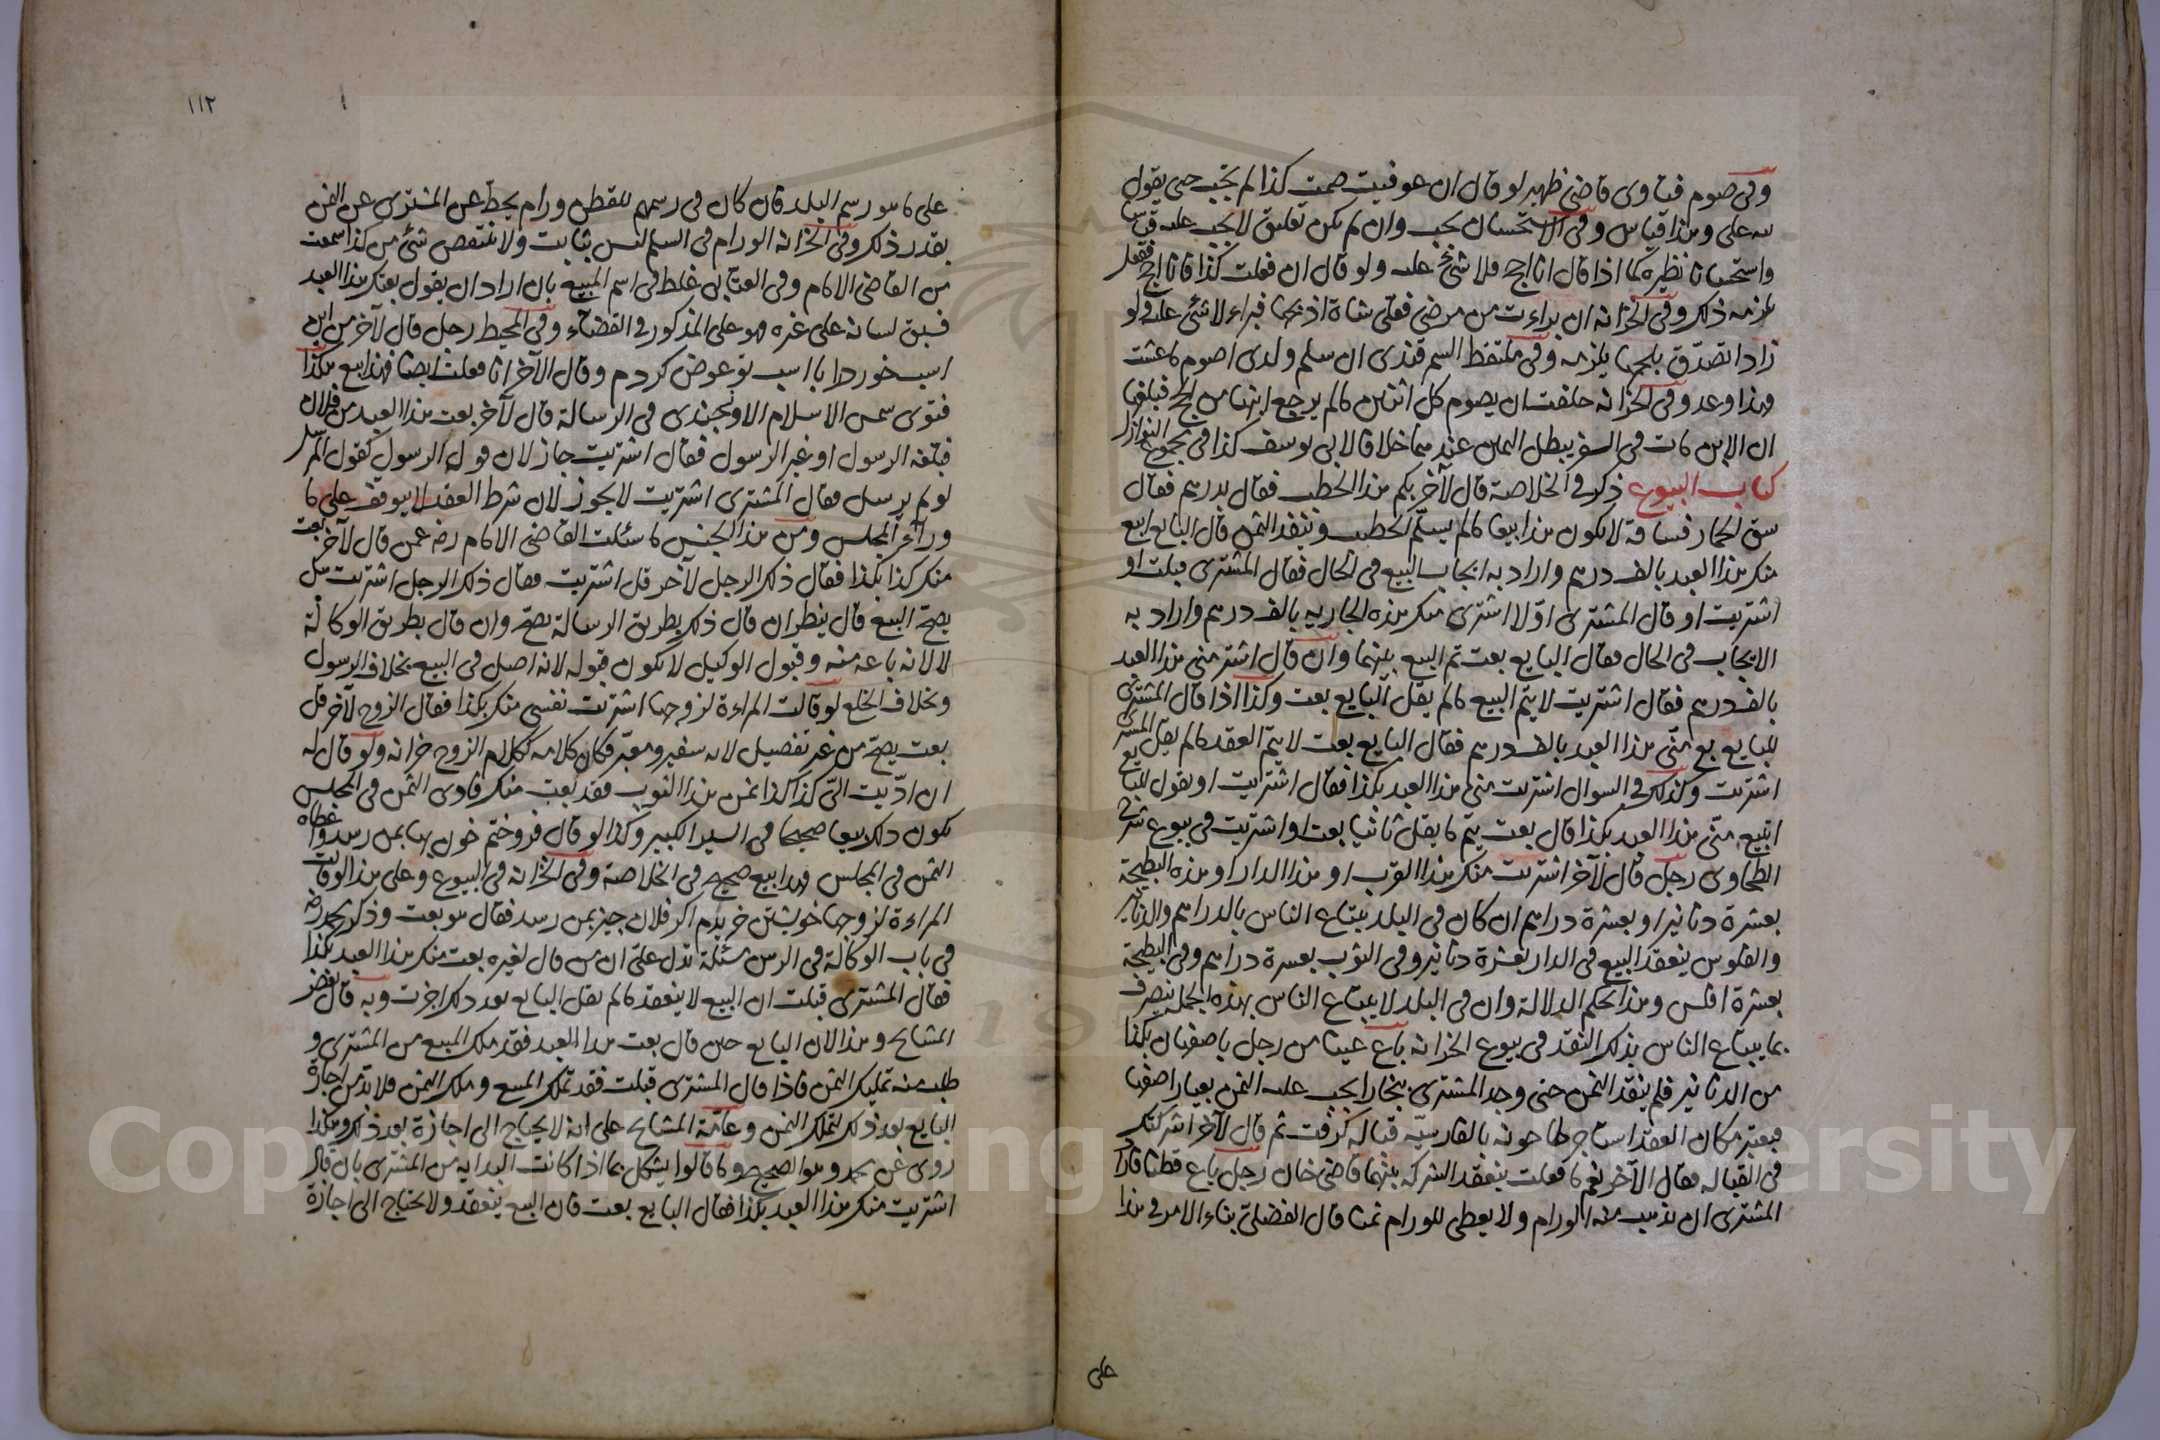 وفي صوم فتاوى قاضي ظهير لو قال ان عوفيت صمت كذا لم يجب حتى يقول
لله على وهذا قياس وفي الاستحسان يجب وان لم يكن تعليق لا يجب عليه قياسا
واستحسانا نظيره كما اذا قال انا احج فلا شئ عليه ولو قال ان فعلت كذا فانا احج ففعل
يلزمه ذلك وفي الخزانه ان برات من مرضى فعلى شاة اذبحها فبراء لا شئ عليه ولو
زاد اتصدق بلحمها يلزمه وفي ملتقط السمرقندى ان سلم ولدى اصوم ما عشت
وهذا وعد وفي الخزانه حلفت ان يصوم كل اثنين مالم يرجع ابنها من الحج فبلغها
ان الابن مات في السفر يبطل اليمين عندهما خلافا لابى يوسف كذا في مجموع النوازل
كتاب البيوع ذكر في الخلاصة قال لآخر بكم هذا الحطب فقال بدرهم فقال
سق الحمار فساقه لا يكون هذا بيعا مالم يسلم الحطب وينقد الثمن قال البايع ابيع
منك هذا العبد بالف درهم واراد به ايجاب البيع في الحال فقال المشترى قبلت او
اشتريت او قال المشترى اولا اشترى منك هذه الجاريه بالف درهم واراد به
الايجاب في الحال فقال البايع بعت تم البيع بينهما وان قال اشتر منى هذا العبد
بالف درهم فقال اشتريت لا يتم البيع مالم يقل البايع بعت وكذا اذا قال المشترى
للبايع بع منى هذا العبد بالف درهم فقال البايع بعت لا يتم العقد مالم يقل المشترى
اشتريت وكذلك في السوال اشتريت منى هذا العبد بكذا فقال اشتريت او يقول للبايع
اتبيع منى هذا العبد بكذا قال بعت يتم ما يقل ثانيا بعت او اشتريت في بيوع شرح
الطحاوى رجل قال لآخر اشتريت منك هذا الثوب او هذا الدار او هذه البطيحة
بعشرة دنانير او بعشرة دراهم ان كان في البلد يبتاع الناس بالدراهم والدنانير
والفلوس ينعقد البيع في الدار بعشرة دنانير وفي الثوب بعشرة دراهم وفي البطيحة
بعشرة افلس وهذا بحكم الدلالة وان في البلد لا يبتاع الناس بهذه الجملة ينصرف
بما يبتاع الناس بذلك النقد في بيوع الخزانه باع عينا من رجل باصفهان بكذا
من الدنانير فلم ينقد الثمن حتى وجد المشترى ببخارا يجب عليه الثمن بعيار اصفهان
فيعتبر مكان العقد استاجر طاحونه بالفارسيه قباله كرفت ثم قال لآخر اشركتك
في القباله فقال الآخر نعم ما فعلت ينعقد الشركه بينهما قاضى خان رجل باع قطنا فاراد
المشترى ان يذهب منه الورام ولا يعطى للورام ثمنا قال الفضلى بناء الامر في هذا
على
١١٢
على ما هو رسم البلد فان كان في رسمهم للقطن ورام يحط عن المشترى عن الثمن
بقدر ذلك وفي الخزانه الورام في السلم ليس بثابت ولا ينتقص شئ من كذا سمعت
من القاضى الامام وفي العتابى غلط في اسم المبيع بان اراد ان يقول بعتك هذا العبد
فسبق لسانه على غيره فهو على المذكور في القضاء وفي المحيط رجل قال لآخر من اين
اسب خود را با اسب تو عوض كردم وقال الآخر انا فعلت ايضا فهذا بيع هكذا
فتوى شمس الاسلام الاوزجندى في الرسالة قال لآخر بعت هذا العبد من فلان
فبلغه الرسول او غير الرسول فقال اشتريت جاز لان قول الرسول كقول المرسل
لو لم يرسل فقال المشترى اشتريت لا يجوز لان شرط العقد لا يتوقف على ما
وراء المجلس ومن هذا الجنس ما سئلت القاضى الامام رضه عمن قال لآخر بعت
منك كذا بكذا فقال ذلك الرجل لآخر قل اشتريت فقال ذلك الرجل اشتريت هل
يصح البيع قال ينظر ان قال ذلك بطريق الرسالة يصح وان قال بطريق الوكالة
لا لانه باعه منه وقبول الوكيل لا يكون قبوله لانه اصل في البيع بخلاف الرسول
وبخلاف الخلع لو قالت المراءة لزوجها اشتريت نفسى منك بكذا فقال الزوج لآخر قل
بعت يصح من غير تفصيل لانه سفير ومعبر فكان كلامه ككلام الزوج خزانه ولو قال له
ان اديت الى كذا كذا ثمن هذا الثوب فقد بعت منك فادى الثمن في المجلس
يكون ذلك بيعا صحيحا في السير الكبير وكذا لو قال فروختم چون بها بمن رسد واعطاه
الثمن في المجلس فهذا بيع صحيح في الخلاصة وفي الخزانه في البيوع وعلى هذا لو قالت
المراءة لزوجها خويشتن خريدم اكر فلان چيز بمن رسد فقال هو بعت وذكر محمد رضه
في باب الوكالة في الرهن مسئلة تدل على ان من قال لغيره بعت منك هذا العبد بكذا
فقال المشترى قبلت ان البيع لا ينعقد مالم يقل البايع بعد ذلك اجزت وبه قال بعض
المشايخ وهذا لان البايع حين قال بعت هذا العبد فقد ملك المبيع من المشترى و
طلب منه تمليك الثمن فاذا قال المشترى قبلت فقد تملك المبيع وملك الثمن فلا بد من اجازة
البايع بعد ذلك ليتملك الثمن وعامة المشايخ على انه لا يحتاج الى اجازة بعد ذلك وهكذا
روى عن محمد وهو الصحيح وما قالوا يشكل بما اذا كانت البدايه من المشترى بان قال
اشتريت منك هذا العبد بكذا فقال البايع بعت فان البيع ينعقد ولا يحتاج الى اجازة